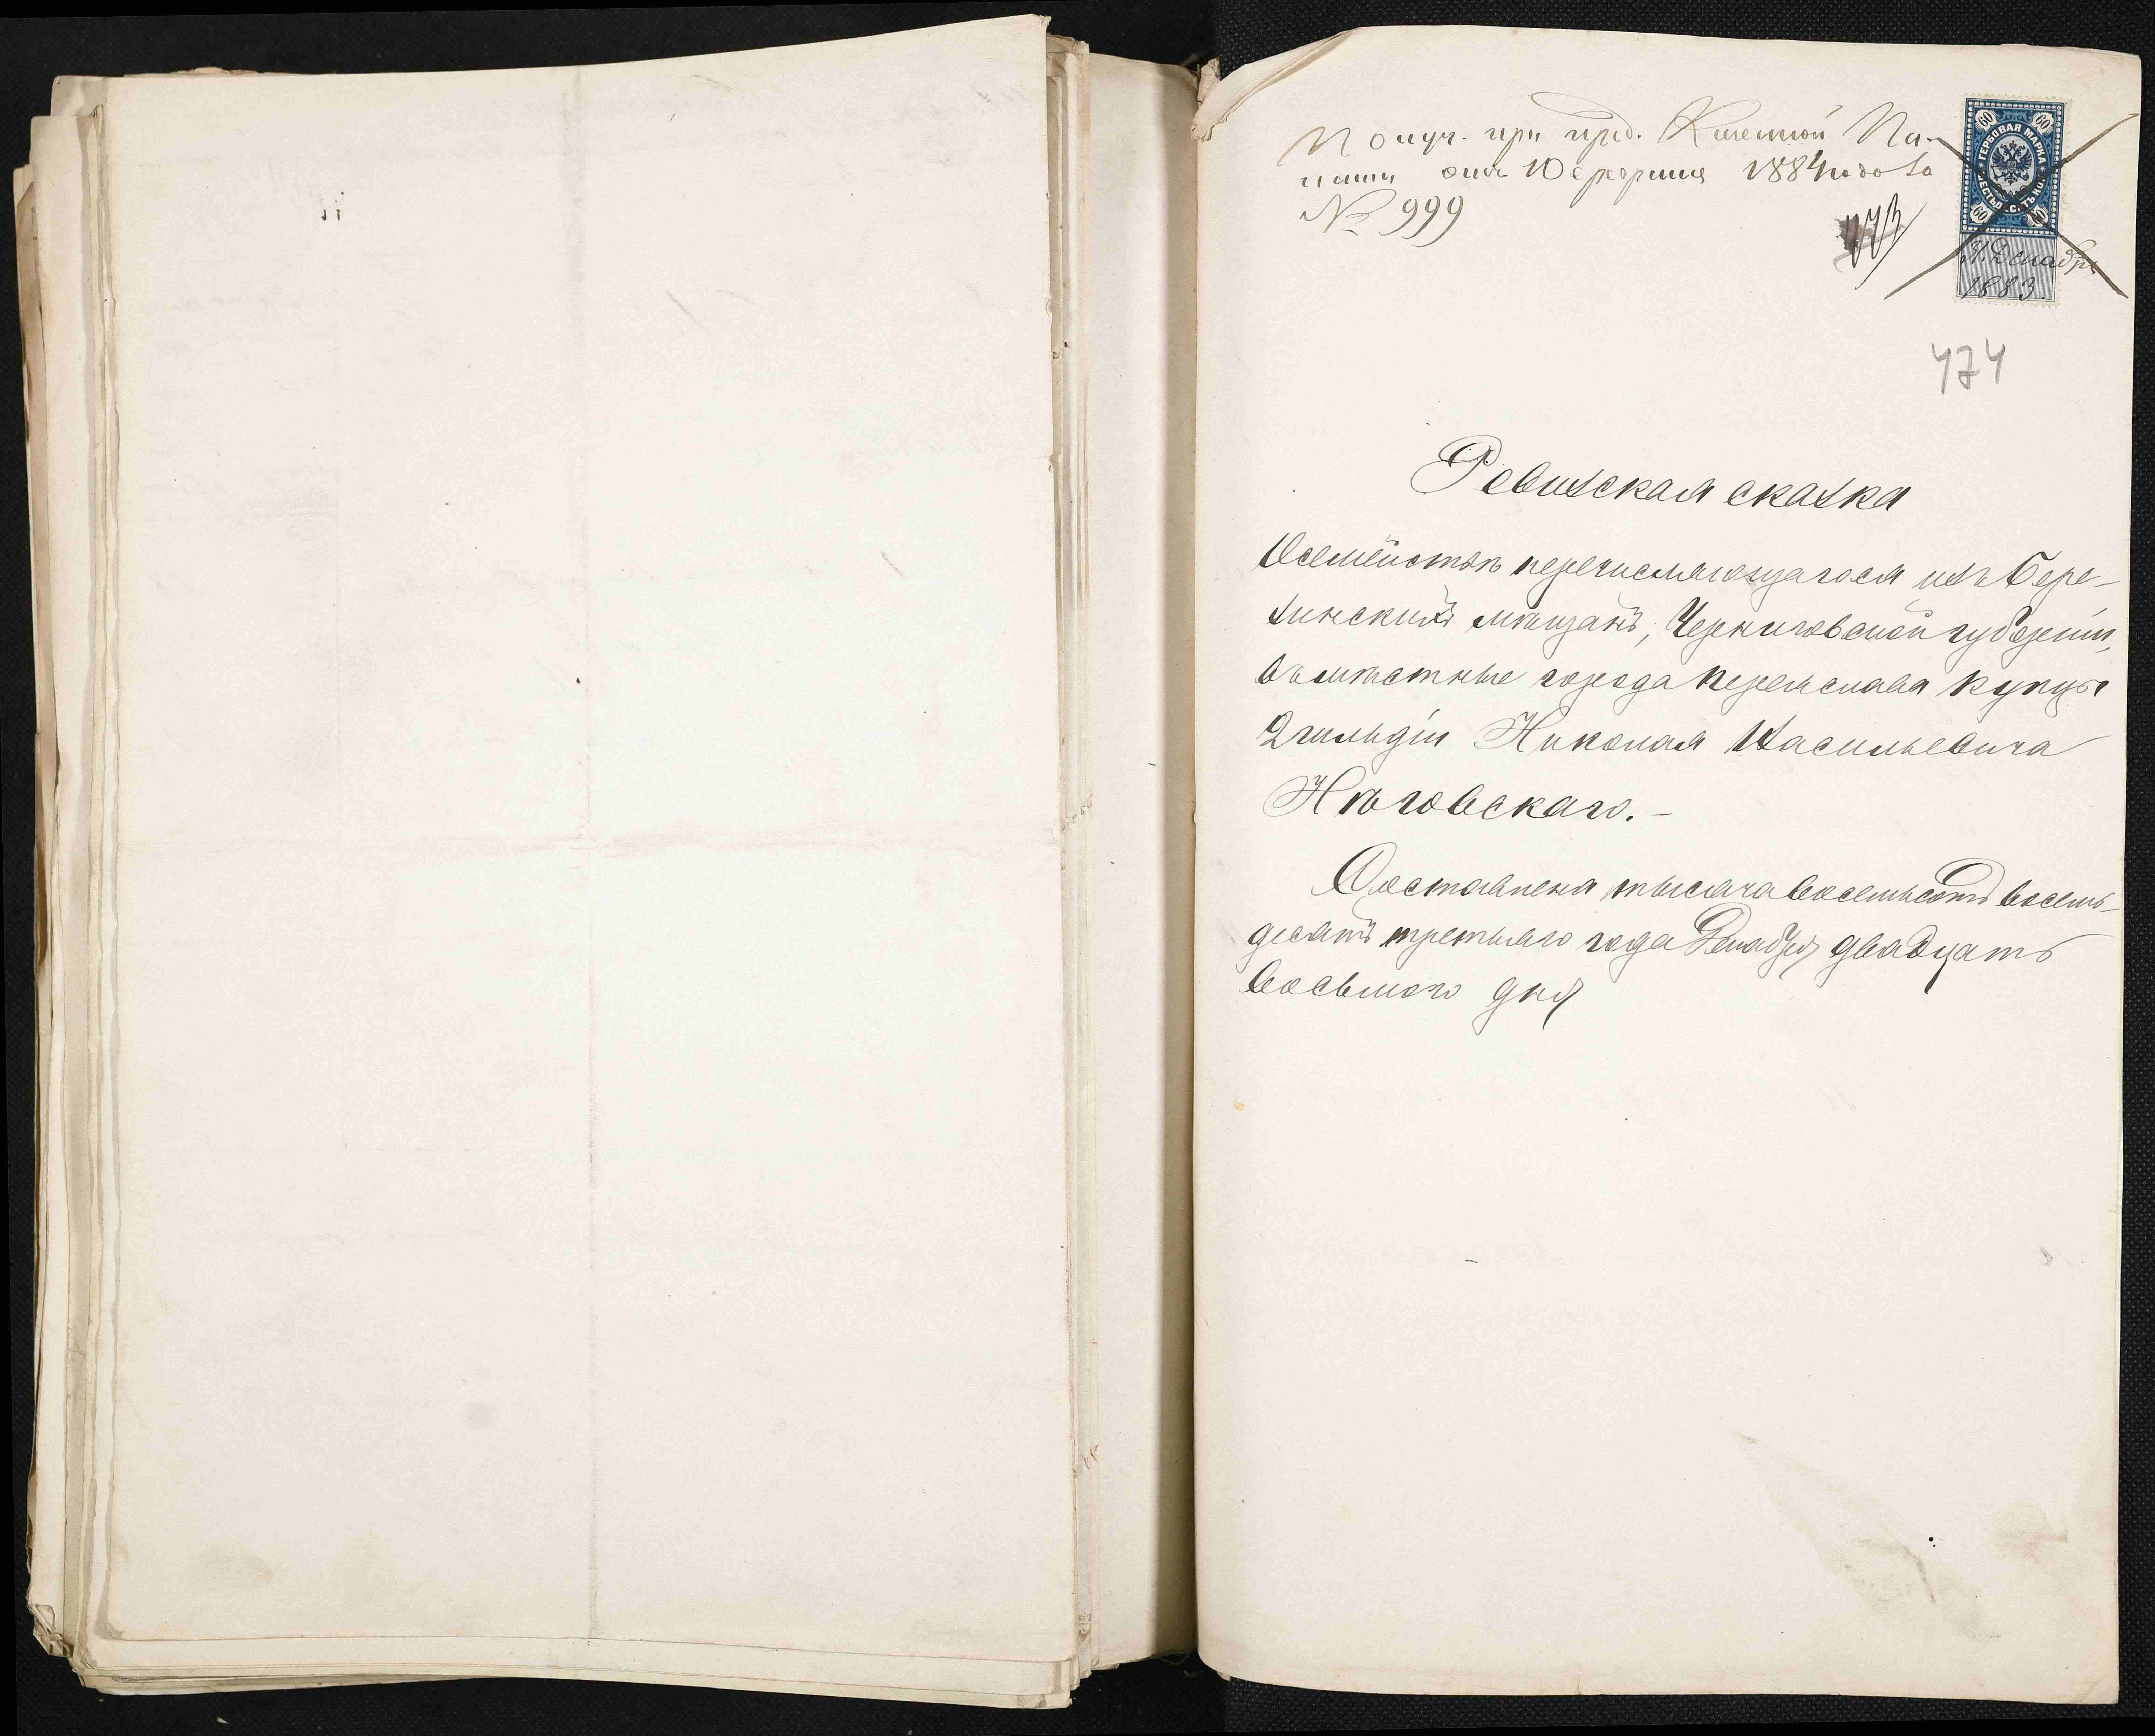 Получ. при пред. Казенной Па-
латы отъ 10 февраля 1884 года за
№ 999
ГЕРБОВАЯ МАРКА
ШЕСТЬДЕСЯТЪ КОП.
60 60
60 60
31. Декабря
1883.
474
Ревизская сказка
О семействѣ перечисляющагося изъ Бере-
зинскихъ мѣщанъ, Черниговской губерніи,
въ мѣстные города Переяслава купцы
2 гильдіи Николая Васильевича
Нѣговскаго. -
Составлена тысяча восемьсотъ восемь-
десятъ третьяго года Декабря двадцать
восьмого дня